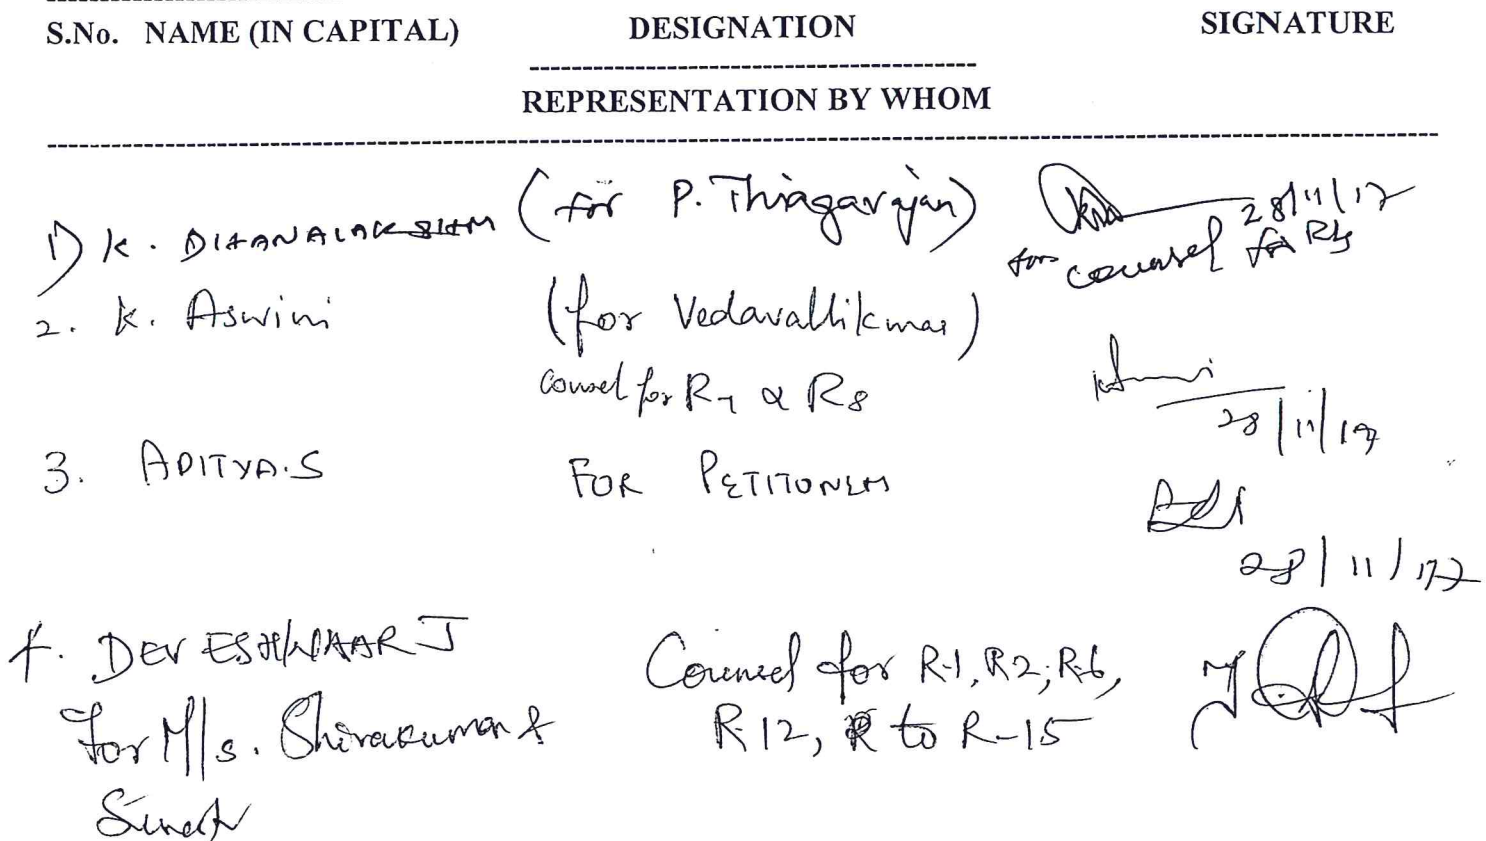 S.No. NAME (IN CAPITAL) DESIGNATION SIGNATURE
REPRESENTATION BY WHOM
1) K. DHANALAKSHM (for P. Thiagarajan) 28/11/17
for counsel for
2. K. Aswini (for Vedavallikumar)
Counsel for R7 & R8
28/11/17
3. ADITYA.S FOR PETITONERS
28/11/17
4. DEVESHWAAR J Counsel for R-1, R2, R-6,
For M/s. Shivakumar & R-12, R to R-15
Suresh